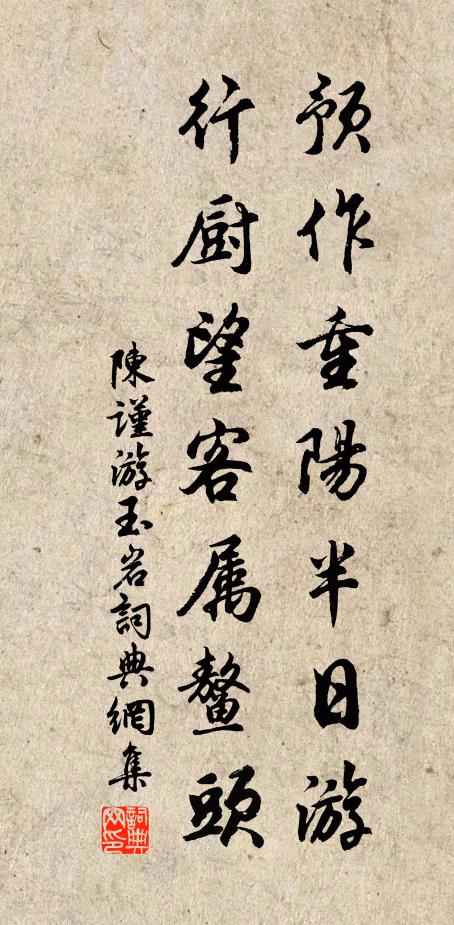 預作重陽半日游
行厨望客属鳌頭
陳謹游玉岩詞典網集
詞典網印